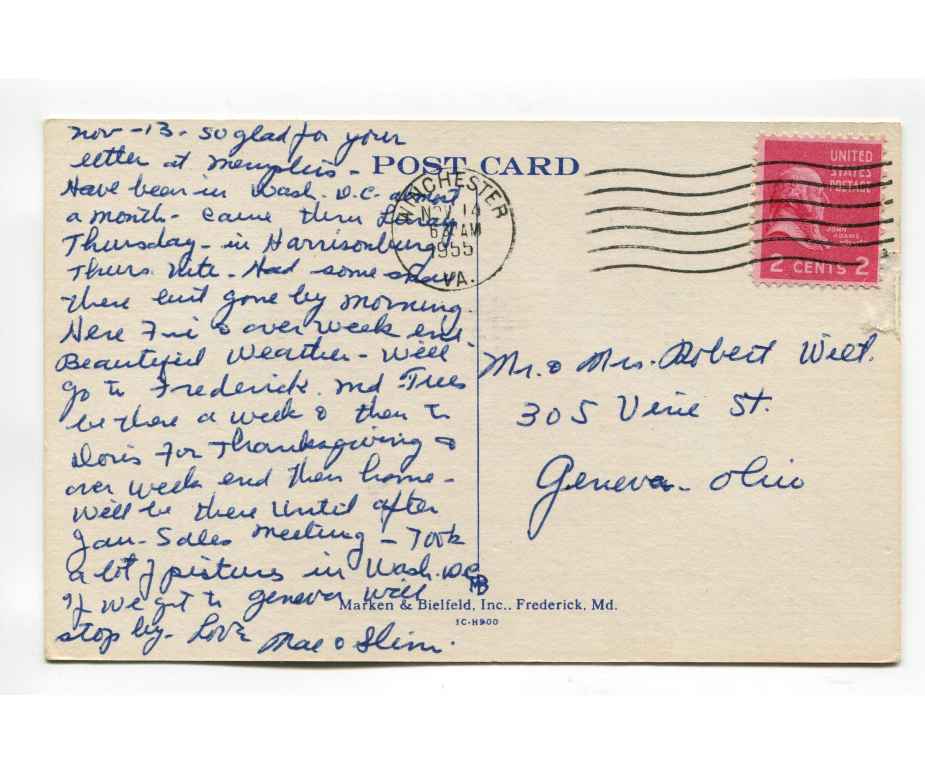 Nov-13- So glad for your
letter at Memphis-
Have been in Wash. D.C. almost
a month- came thru Luray
Thursday- in Harrisonburg
Thurs. Nite- Had some snow
there but gone by morning.
Here Fri & over week end.
Beautiful Weather- Will
go to Frederick. Md -Tues
be there a week & then to
Doris For Thanksgiving &
over week end then home-
Will be there Until after
Jan- Sales meeting- Took
a lot of pictures in Wash. D.C.
If we get to Geneva will
stop by- Love Mae & Slim.
POST CARD
WINCHESTER
NOV 14
6 AM
1955
VA.
UNITED
STATES
POSTAGE
JOHN
ADAMS
2 CENTS 2
Mr. & Mrs. Robert Wilt.
305 Vine St.
Geneva- Ohio
MB
Marken & Bielfeld, Inc., Frederick, Md.
1C-H900